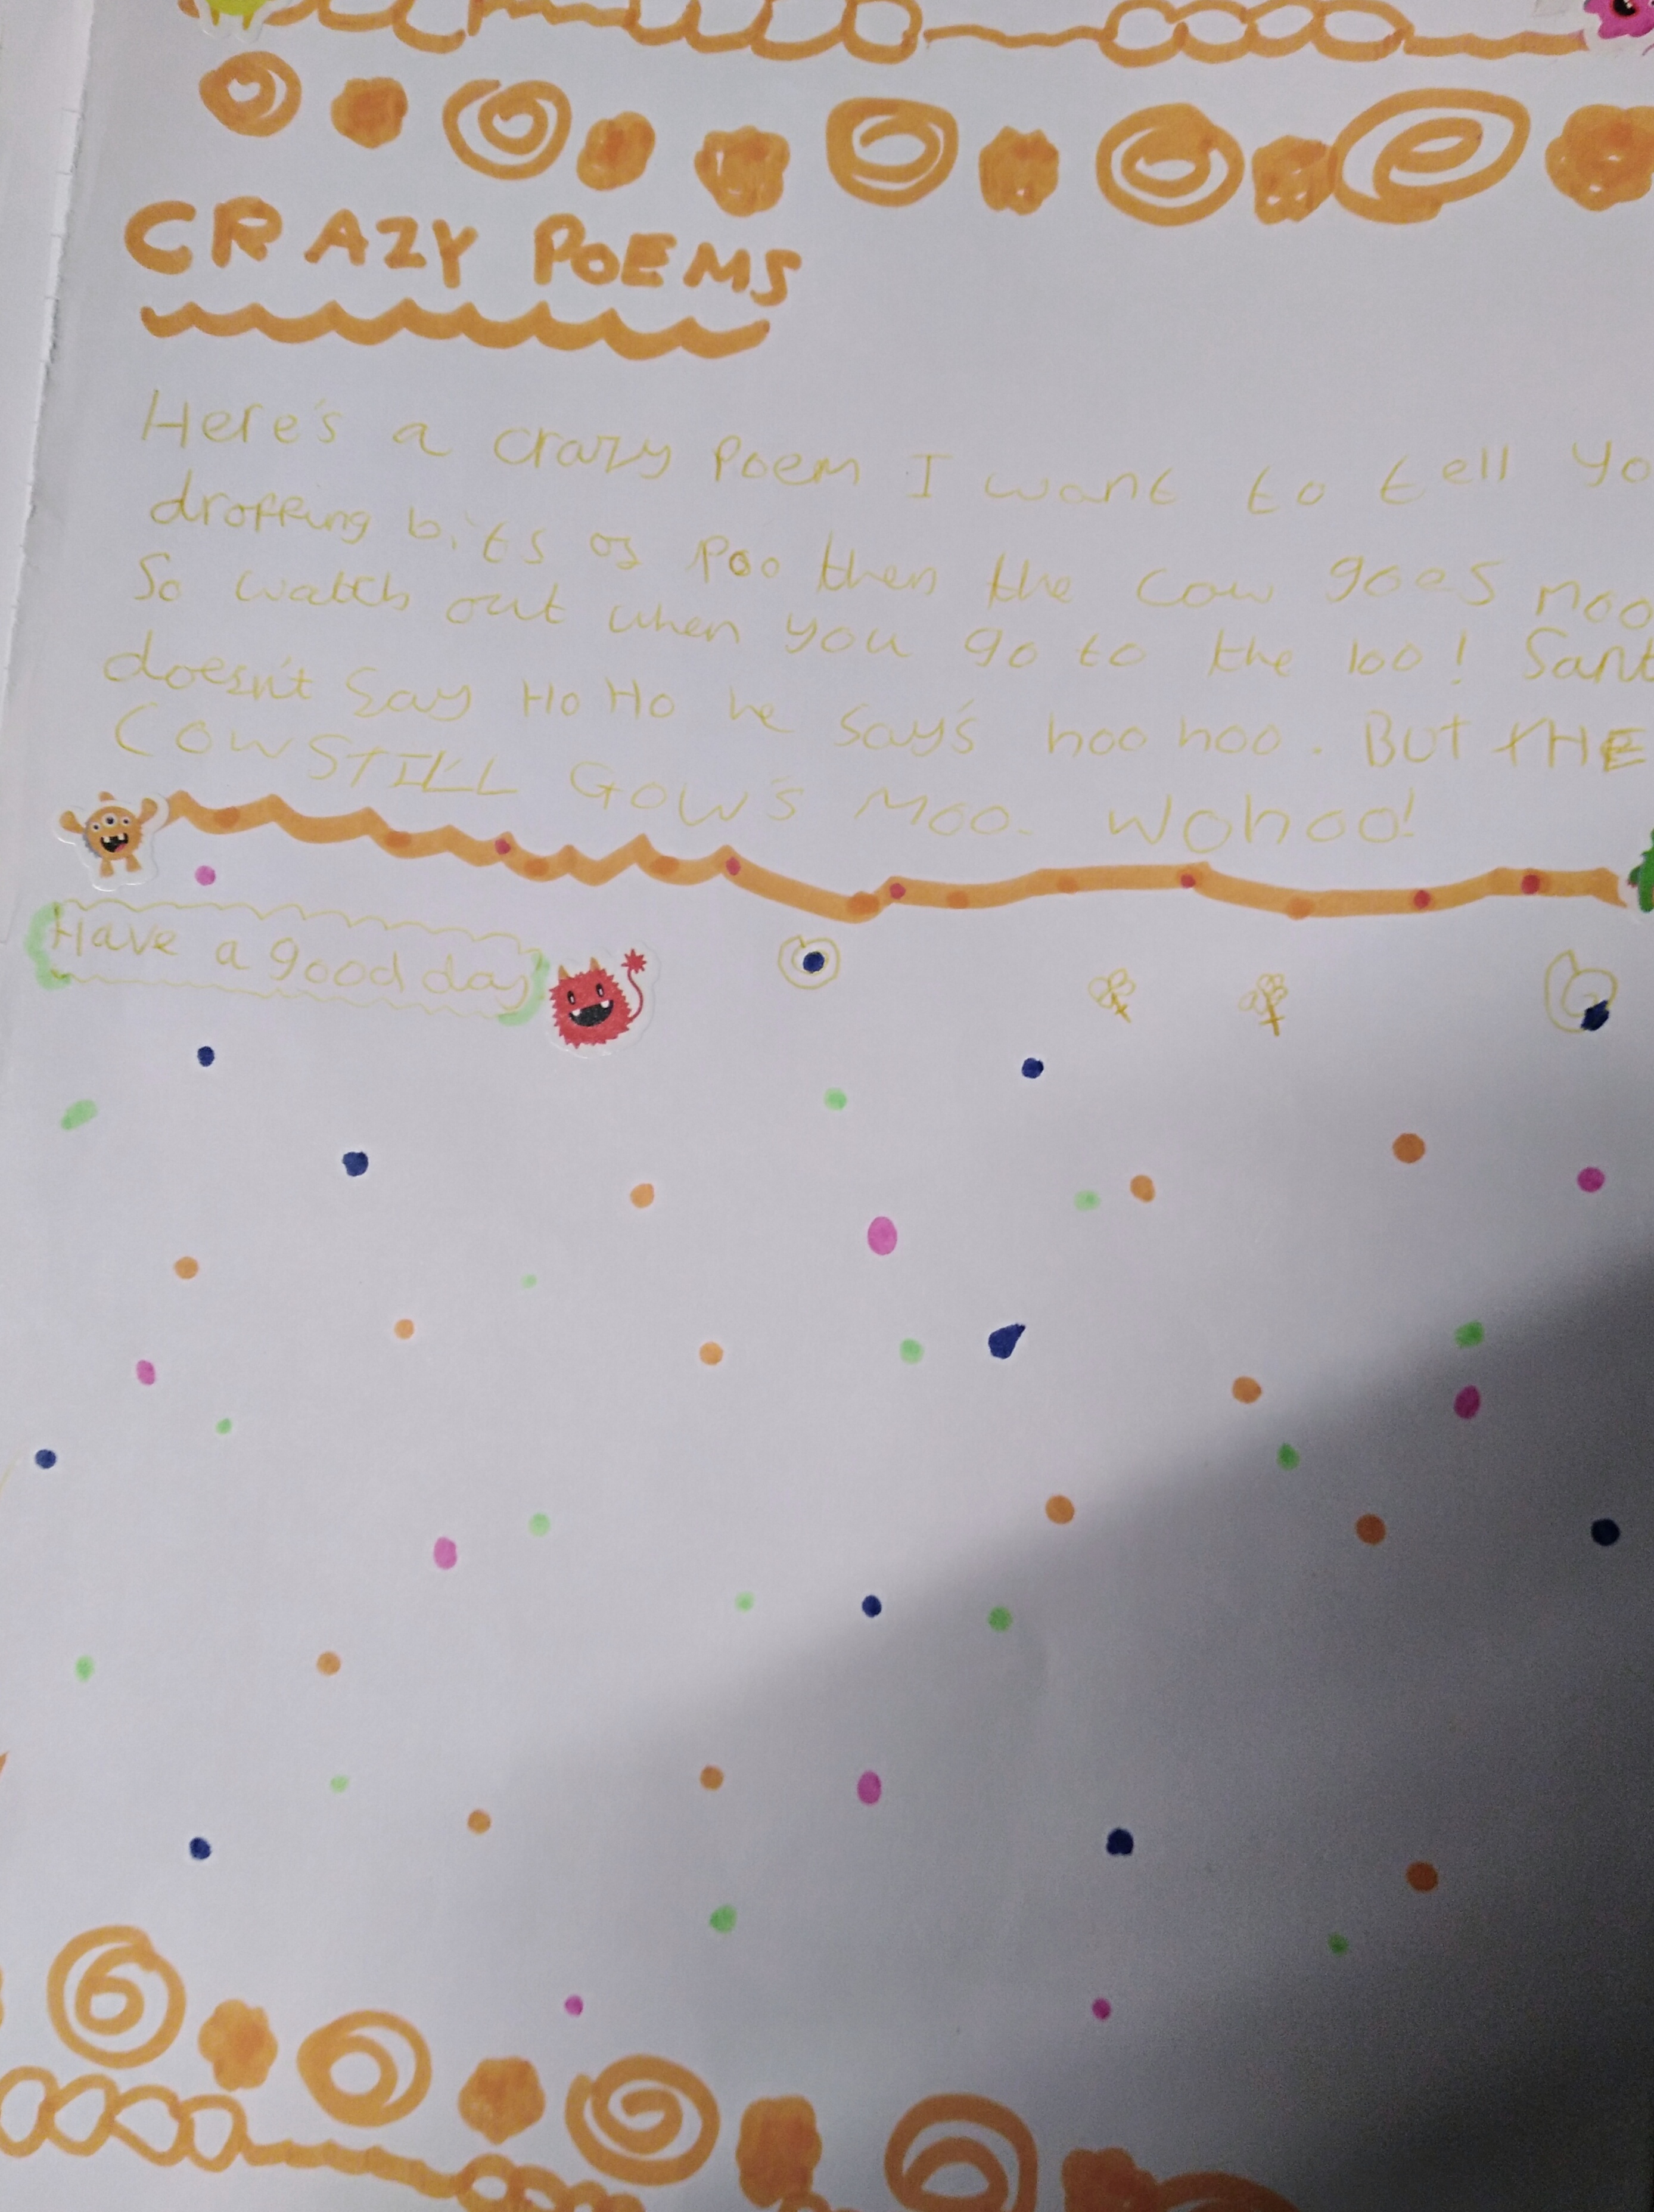 CRAZY POEMS
Here's a crazy Poem I want to tell yo
dropping bits of Poo then the cow goes moo
So watch out when you go to the loo! Sant
doesn't Say Ho Ho he Say's hoo hoo. BUT THE
COW STILL GOW'S MOO. Wohoo!
Have a good day